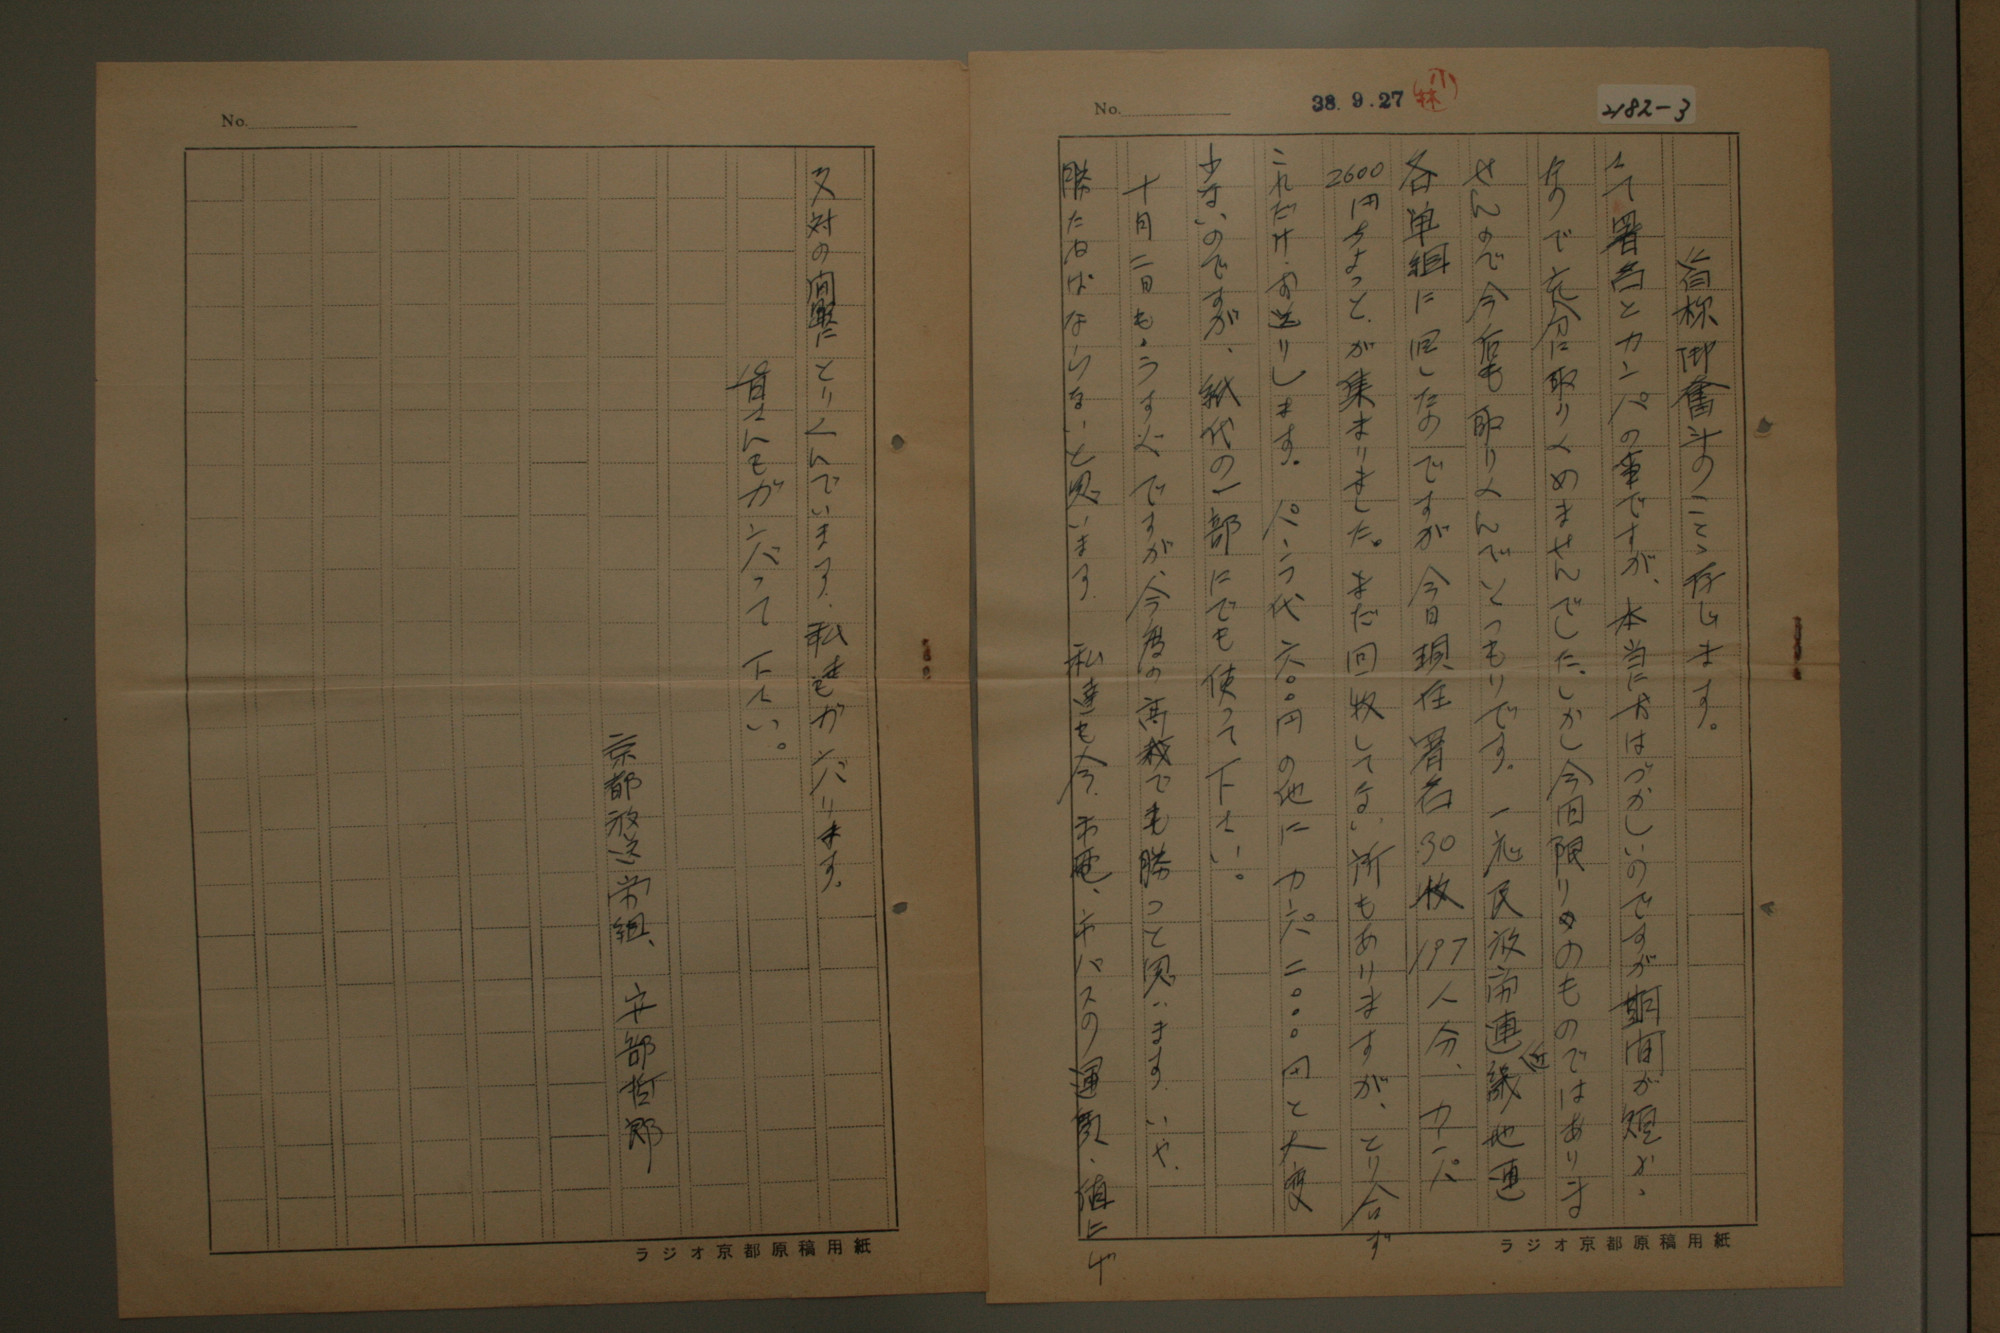 No.
38.9.27
小林
2182-3
皆称御奮斗のことゝ存じます。
さて署名とカンパの事ですが、本当にオはづかしいのですが期間が短か、
なので充分に取りくめませんでした。しかし今回限りのものではありま
せんので今后も取りくんでいくつもりです。一応民放労連近畿地連
各単組に回したのですが今日現在署名30枚197人分、カンパ
2600円ちょっと、が集まりました。まだ回収してない所もありますが、とり合ず
これだけ、お送りします。パンフ代六〇〇円の他にカンパ二〇〇〇円と大変
少ないのですが、紙代の一部にでも使って下さい。
十月二日も、うすぐですが、今度の高裁でも勝つと思います。いや、
勝たねばならないと思います。私達も今、市電、市バスの運賃、値上げ
ラジオ京都原稿用紙
No.
反対の闘争にとりくんでいます。私もガンバリます。
皆さんもガンバって下さい。
京都放送労組、安部哲郎
ラジオ京都原稿用紙